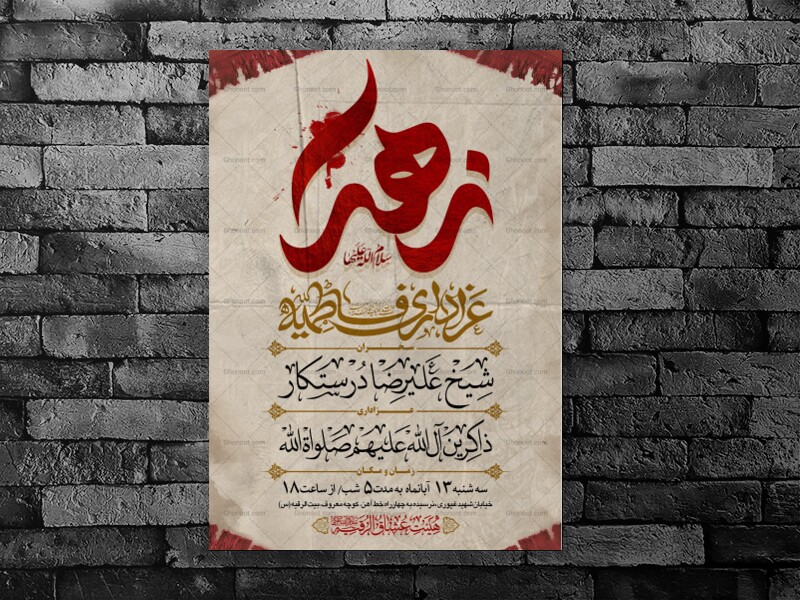 زهرا
سلام الله علیها
عزاداری فاطمیه
سخنران
شیخ علیرضا درستکار
عزاداری
ذاکرین آل الله علیهم صلواة الله
زمان و مکان
سه شنبه ۱۳ آبانماه به مدت ۵ شب / از ساعت ۱۸
خیابان شهید غیوری، نرسیده به چهارراه خط آهن، کوچه معروف، بیت الرقیه (س)
هیئت عشاق الرقیه
Ghonoot.com